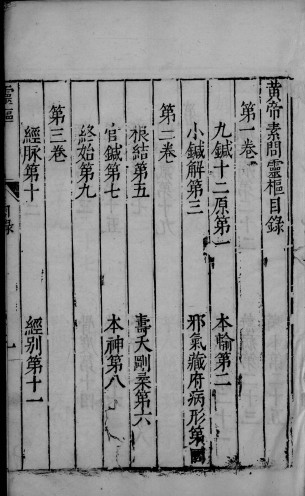 黄帝素問靈樞目錄
第一卷
九鍼十二原第一
本輸第二
小鍼解第三
邪氣藏府病形第四
第二卷
根結第五
壽夭剛柔第六
官鍼第七
本神第八
終始第九
第三卷
經脉第十
經别第十一
靈樞
目錄